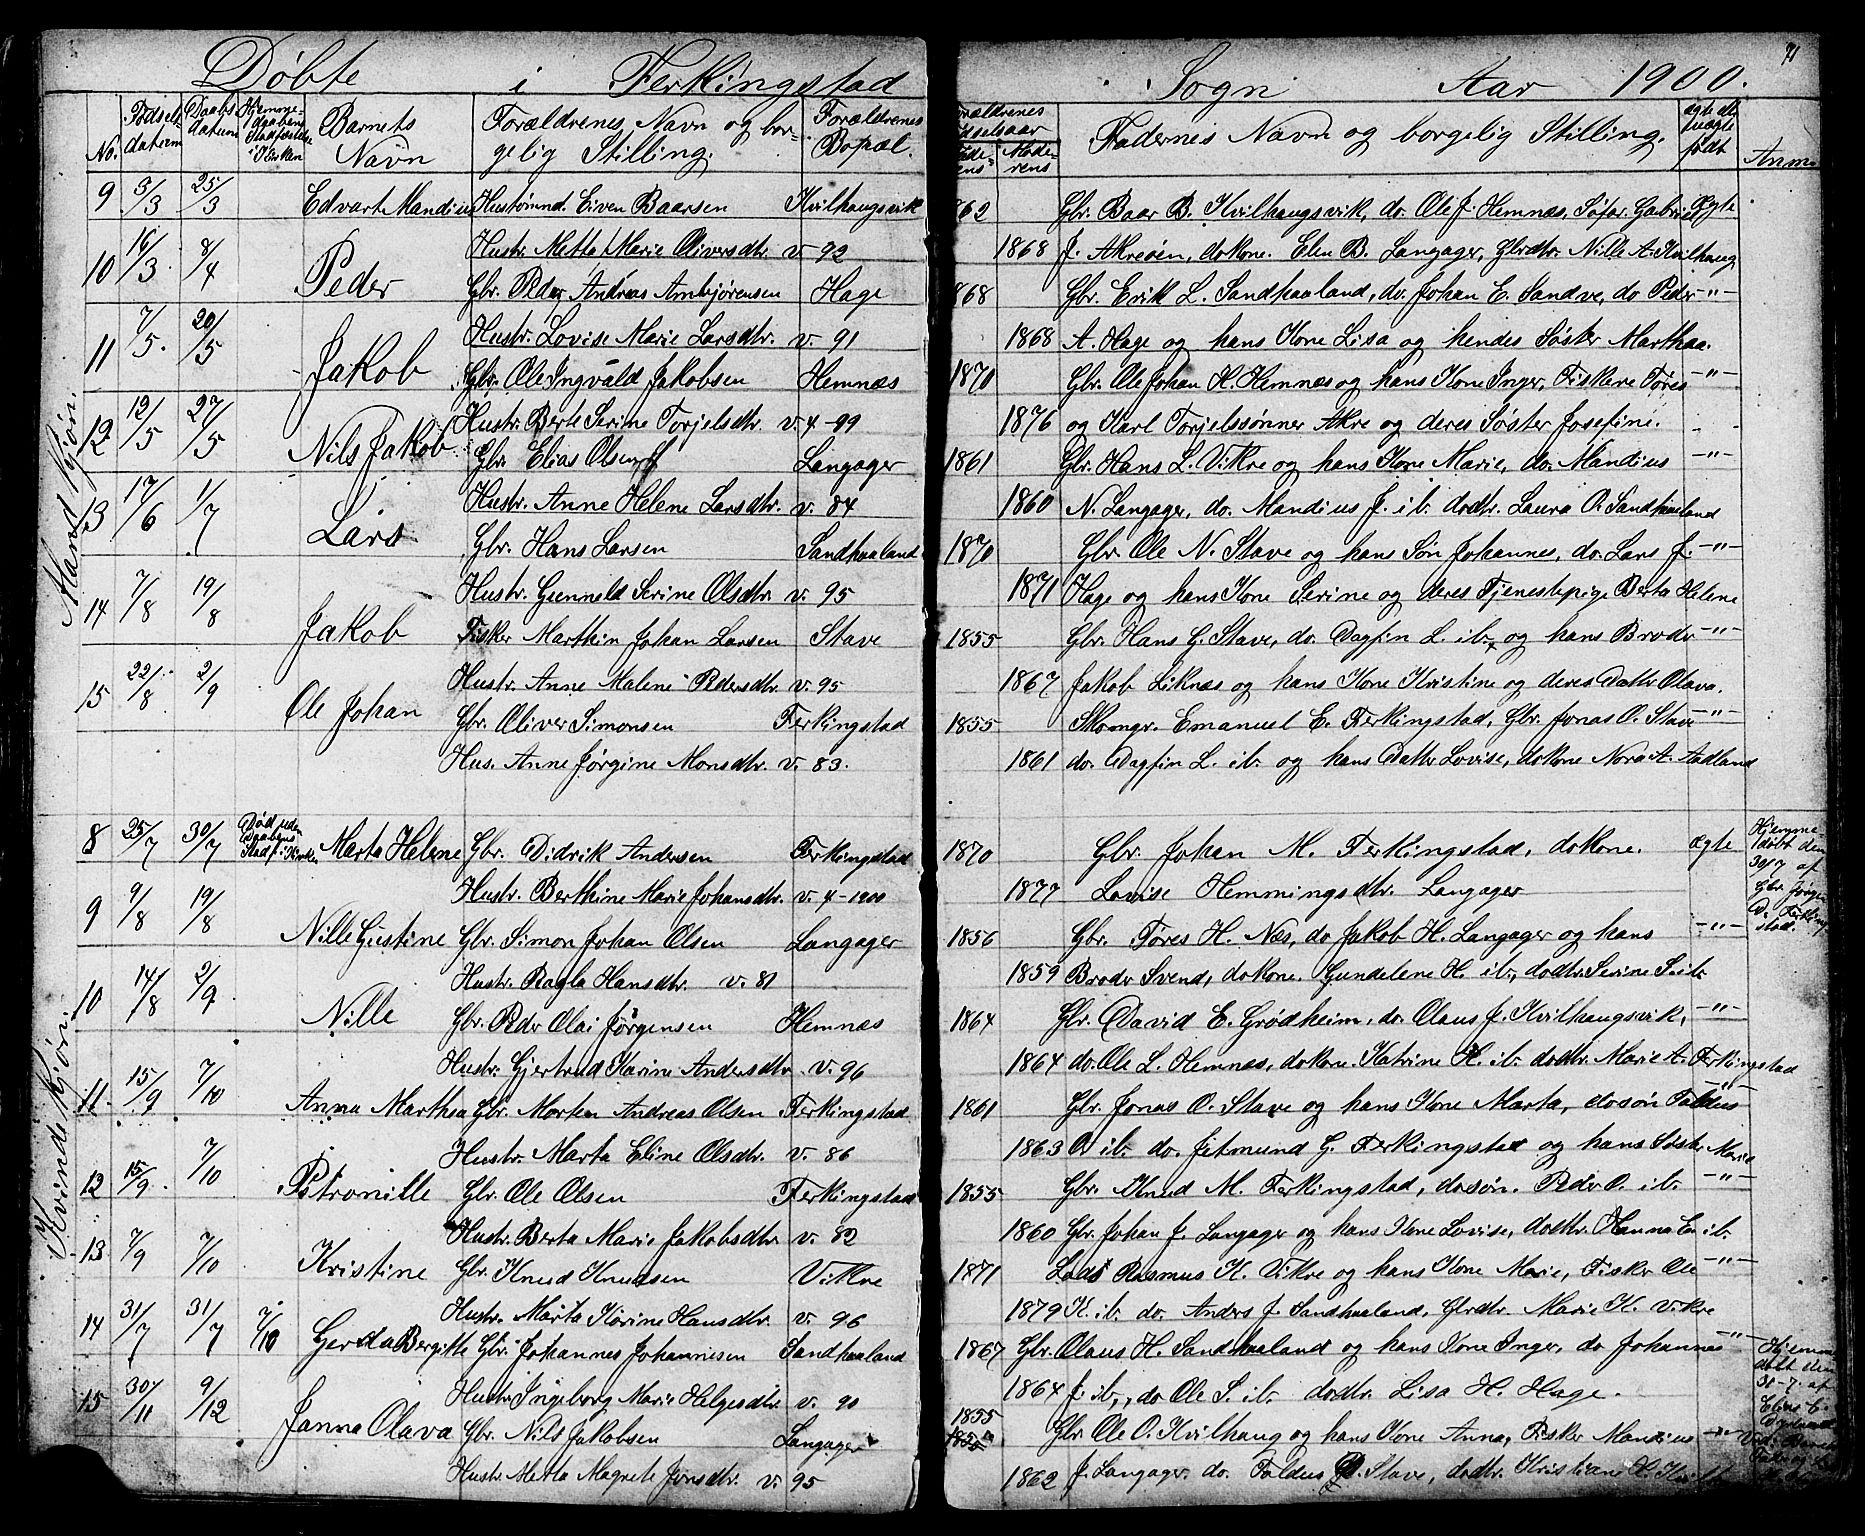 Døbte i Ferkingstad Sogn Aar 1900.
71
No. Fødsels datum Daabs datum Hjemme daabens Stadfæstelse i Kirken Barnets Navn Forældrenes Navn og borgelig Stilling. Forældrenes Bopæl. Forældrenes Fødselsaar Faderens Moderens Faddernes Navn og borgelig Stilling. ægte eller uægte født Anm.
Mand Kjøn.
9 3/3 25/3 Edvart Mandius Hustømnd. Eiven Baarsen Kvilhaugsvik 862 Gbr. Baar B. Kvilhaugsvik, do. Ole J. Hemnæs, Søfar. Gabriel Ægte
Hustr. Metta Marie Oliversdtr. v. 92 1868 J. Akreøen, do kone. Elen B. Langager, Gbrdtr. Nille A. Kvilhaug
10 16/3 8/4 Peder Gbr. Peder Andreas Ambjørensen Hage 868 Gbr. Erik L. Sandhaaland, do. Johan E. Sandve, do Peder -"-
Hustr. Lovise Marie Larsdtr. v. 91 1868 A. Hage og hans Kone Lisa og hendes Søster Marthaa.
11 7/5 20/5 Jakob Gbr. Ole Ingvald Jakobsen Hemnæs 1870 Gbr. Ole Johan H. Hemnæs og hans Kone Inger, Fiskere Tøres -"-
Hustr. Berte Serine Torjelsdtr. v. 4-99 1876 og Karl Torjelssønner Akre og deres Søster Josefine.
12 12/5 27/5 Nils Jakob Gbr. Elias Olsen Langager 1861 Gbr. Hans L. Vikre og hans Kone Marie, do. Mandius -"-
Hustr. Anne Helene Larsdtr. v. 84 1860 N. Langager, do. Mandius J. ib. dodtr. Laura O. Sandhaaland
13 17/6 1/7 Lars Gbr. Hans Larsen Sandhaaland 1870 Gbr. Ole N. Stave og hans Søn Johannes, do. Lars J. -"-
Hustr. Gunneld Serine Olsdtr. v. 95 1871 Hage og hans Kone Serine og deres Tjenestepige Berta Helene
14 7/8 19/8 Jakob Fisker Marthin Johan Larsen Stave 1855 Gbr. Hans G. Stave, do. Dagfin L. ib. og hans Broder -"-
Hustr. Anne Malene Pedersdtr. v. 95 1867 Jakob Liknæs og hans Kone Kristine og deres Datter Olava.
15 22/8 2/9 Ole Johan Gbr. Oliver Simonsen Ferkingstad 1855 Skomgr. Emanuel E. Ferkingstad, Gbr. Jonas O. Stave -"-
Hus. Anne Jørgine Monsdtr. v. 83. 1861 do. Dagfin L. ib. og hans Datter Lovise, do kone Nora A. Aadland
Kvinde Kjøn.
8 25/7 30/7 Død uden Daabens Stadf. i Kirken Marta Helene Gbr. Didrik Andersen Ferkingstad 1870 Gbr. Johan M. Ferkingstad, do kone. Ægte Hjemmedøbt den 30/7 af Gbr. Jørgen D. Ferkingstad.
Hustr. Berthine Marie Johansdtr. v. 4-1900 1877 Lovise Hemmingsdtr. Langager
9 9/8 19/8 Nille Gustine Gbr. Simon Johan Olsen Langager 1856 Gbr. Tøres H. Næs, do Jakob H. Langager og hans -"-
Hustr. Ragla Hansdtr. v. 81 1859 Broder Svend, do kone. Gundelene H. ib., dodtr. Serine S. ib.
10 14/8 2/9 Nille Gbr. Peder Olai Jørgensen Hemnæs 1864 Gbr. David E. Grødheim, do. Olaus J. Kvilhaugsvik, -"-
Hustr. Gjertrud Karine Andersdtr. v. 96 1864 do. Ole L. Hemnæs, do kone. Katrine H. ib. dodtr. Marie A. Ferkingstad
11 15/9 7/10 Anna Marthea Gbr. Morten Andreas Olsen Ferkingstad 1861 Gbr. Jonas O. Stave og hans Kone Marta, do søn Faldus -"-
Hustr. Marta Eline Olsdtr. v. 86 1863 O. ib. do. Jetmund G. Ferkingstad og hans Søster Marie
12 15/9 7/10 Petronille Gbr. Ole Olsen Ferkingstad 1855 Gbr. Knud M. Ferkingstad, do søn. Peder O. ib. -"-
Hustr. Berta Marie Jakobsdtr. v. 82 1860 Gbr. Johan J. Langager og hans Kone Lovise, dodtr. Hanna E. ib.
13 7/9 7/10 Kristine Gbr. Knud Knudsen Vikre 1871 Lods Rasmus K. Vikre og hans Kone Marie, Fisker Ole -"-
Hustr. Marta Karine Hansdtr. v. 96 1879 K. ib. do. Anders J. Sandhaaland, Gbrdtr. Marie K. Vikre
14 31/7 31/7 7/10 Gerda Bergitte Gbr. Johannes Johannesen Sandhaaland 1867 Gbr. Olaus H. Sandhaaland og hans Kone Inger, do Johannes -"- Hjemmedøbt den 31-7. af Elias
Hustr. Ingeborg Marie Helgesdtr. v. 90 1864 J. ib., do Ole S. ib. dodtr. Lisa H. Hage.
15 30/11 9/12 Janna Olava Gbr. Nils Jakobsen Langager 1855 Gbr. Ole O. Kvilhaug og hans Kone Anna, Fisker Mandius -"-
Hustr. Metta Magrete Jonsdtr. v. 95 1862 J. Langager. do. Faldus O. Stave, dodtr. Kristiane H.